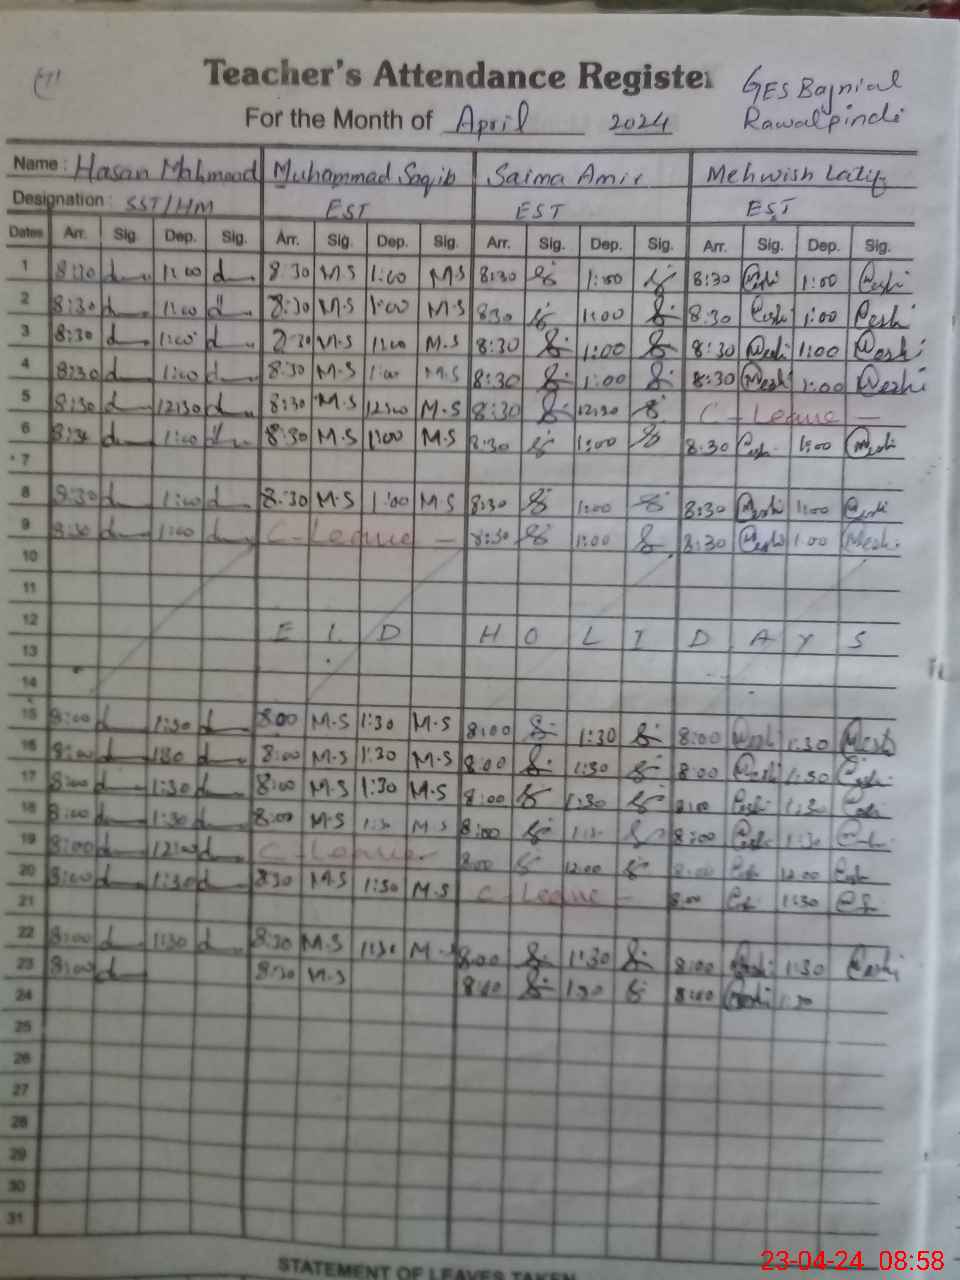 Teacher's Attendance Register
GES Bajnial
Rawalpindi
For the Month of April 2024
Name : Hasan Mahmood Muhammad Saqib Saima Amir Mehwish Latif
Designation : SST/HM EST EST EST
Dates Arr. Sig. Dep. Sig. Arr. Sig. Dep. Sig. Arr. Sig. Dep. Sig. Arr. Sig. Dep. Sig.
1 8:30 1:00 8:30 M.S 1:00 M.S 8:30 1:00 8:30 1:00
2 8:30 1:00 8:30 M.S 1:00 M.S 8:30 1:00 8:30 1:00
3 8:30 1:00 8:30 M.S 1:00 M.S 8:30 1:00 8:30 1:00
4 8:30 1:00 8:30 M.S 1:00 M.S 8:30 1:00 8:30 1:00
5 8:30 12:30 8:30 M.S M.S 8:30 12:30 C-Leave -
6 8:30 1:00 8:30 M.S 1:00 M.S 8:30 1:00 8:30 1:00
7
8 8:30 1:00 8:30 M.S 1:00 M.S 8:30 1:00 8:30 1:00
9 8:30 1:00 C-Leave - 8:30 1:00 8:30 1:00
10
11
12 E I D H O L I D A Y S
13
14
15 8:00 1:30 8:00 M.S 1:30 M.S 8:00 1:30 8:00 1:30
16 8:00 1:30 8:00 M.S 1:30 M.S 8:00 1:30 8:00 1:30
17 8:00 1:30 8:00 M.S 1:30 M.S 8:00 1:30 8:00 1:30
18 8:00 1:30 8:00 M.S 1:30 M.S 8:00 1:30 8:00 1:30
19 8:00 12:00 C-Leave 8:00 12:00 8:00 12:00
20 8:00 1:30 8:30 M.S 1:30 M.S C-Leave - 8:00 1:30
21
22 8:00 1:30 8:30 M.S 1:30 M.S 8:00 1:30 8:00 1:30
23 8:00 8:30 M.S 8:00 1:30 8:00 1:30
24
25
26
27
28
29
30
31
STATEMENT OF LEAVES TAKEN
23-04-24 08:58